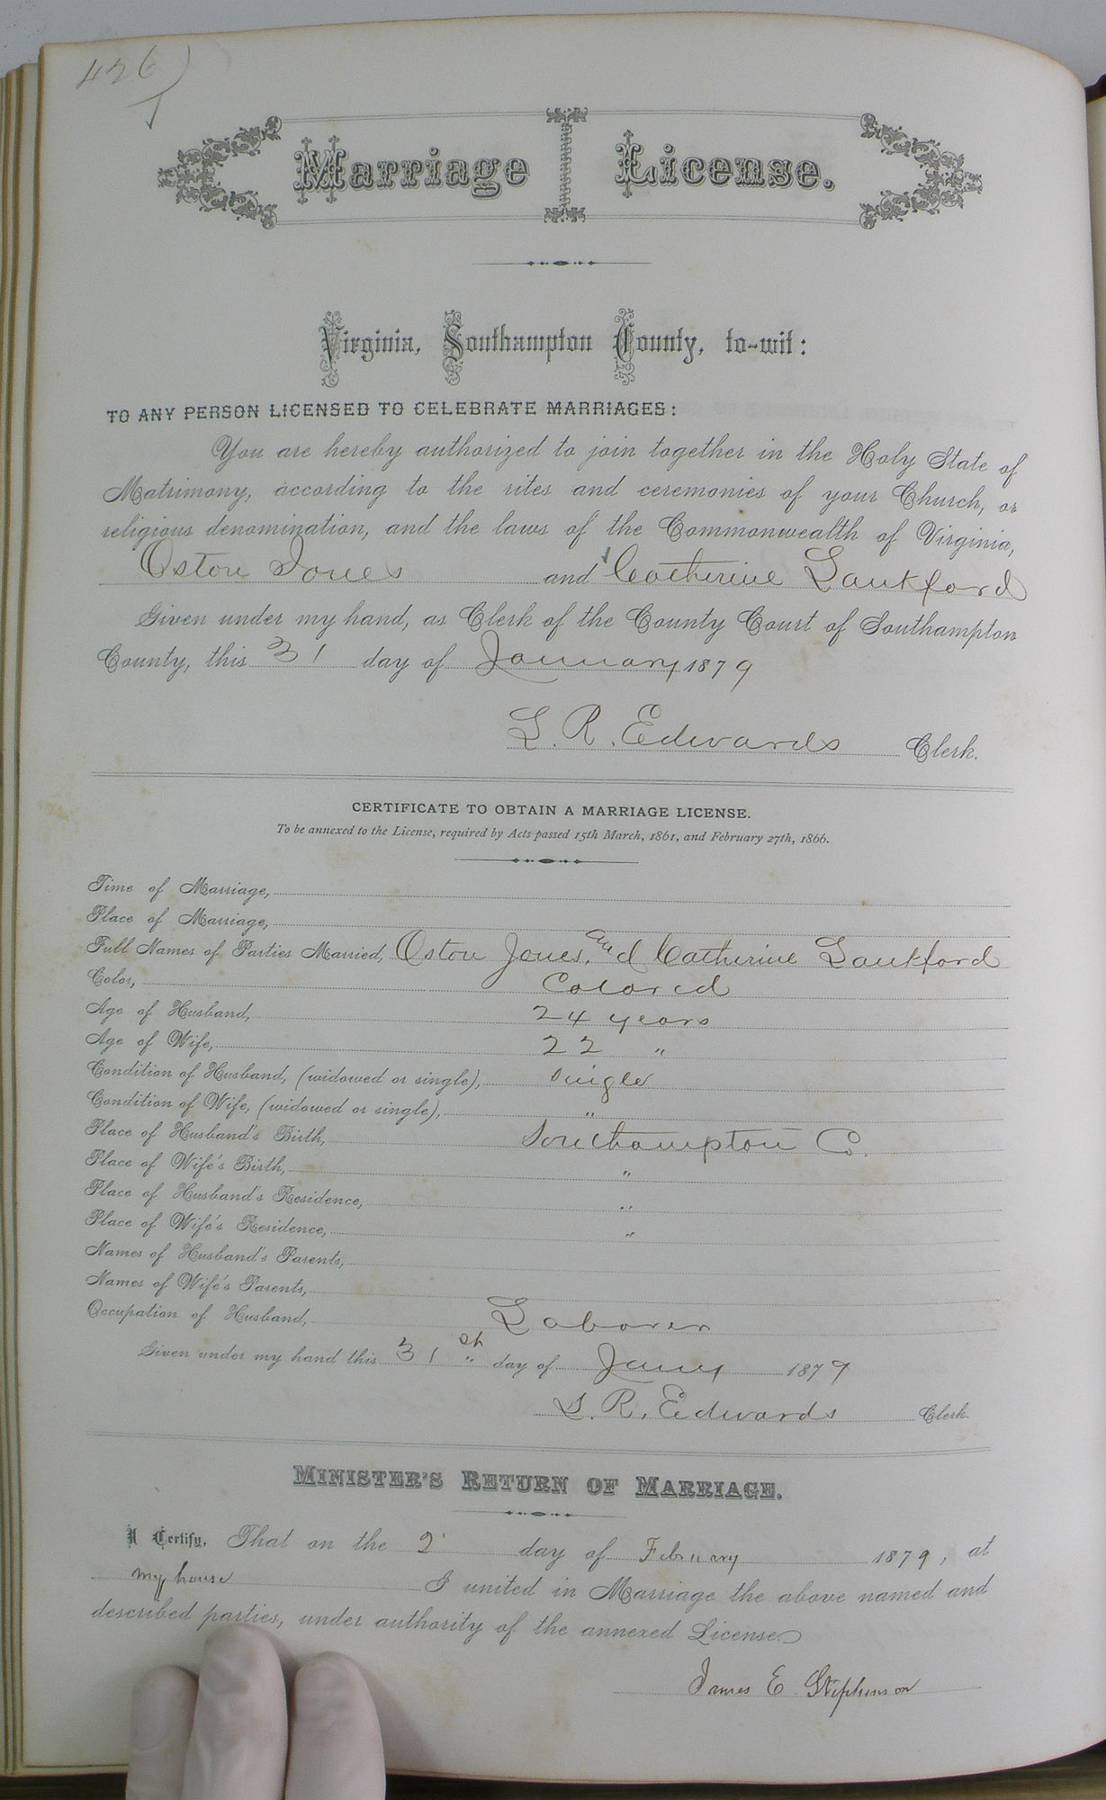 426)
Marriage License.
Virginia, Southampton County, to-wit:
TO ANY PERSON LICENSED TO CELEBRATE MARRIAGES:
You are hereby authorized to join together in the Holy State of
Matrimony, according to the rites and ceremonies of your Church, or
religious denomination, and the laws of the Commonwealth of Virginia,
Oston Jones and Catherine Lankford
Given under my hand, as Clerk of the County Court of Southampton
County, this 31 day of January 1879
L. R. Edwards Clerk.
CERTIFICATE TO OBTAIN A MARRIAGE LICENSE.
To be annexed to the License, required by Acts passed 15th March, 1861, and February 27th, 1866.
Time of Marriage,
Place of Marriage,
Full Names of Parties Married, Oston Jones, and Catherine Lankford
Color, Colored
Age of Husband, 24 years
Age of Wife, 22 "
Condition of Husband, (widowed or single), Single
Condition of Wife, (widowed or single), "
Place of Husband's Birth, Southampton Co.
Place of Wife's Birth, "
Place of Husband's Residence, "
Place of Wife's Residence, "
Names of Husband's Parents,
Names of Wife's Parents,
Occupation of Husband, Laborer
Given under my hand this 31st day of Jany 1879
L. R. Edwards Clerk.
MINISTER'S RETURN OF MARRIAGE.
I Certify, That on the 2 day of February 1879, at
my house I united in Marriage the above named and
described parties, under authority of the annexed License.
James E Stephenson